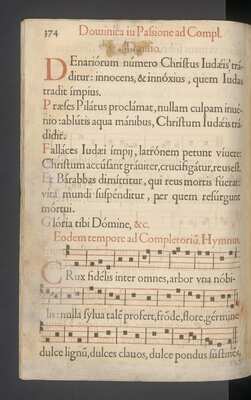 174 Dominica in Passione ad Compl.
DEnariórum número Christus Iudǽis trá-
ditur: innocens, & innóxius, quem Iudas
tradit ímpius.
Præses Pilátus proclámat, nullam culpam inué-
nio: ablútis aqua mánibus, Christum Iudǽis trá-
didit.
Falláces Iudæi ímpij, latrónem petunt víuere:
Christum accúsant gráuiter, crucifigátur, reus est.
Et Bárabbas dimíttitur, qui reus mortis fúerat:
vita mundi suspénditur, per quem resúrgunt
mórtui.
Glória tibi Dómine, &c.
Eodem tempore ad Completoriū. Hymnus.
CRux fidélis inter omnes, arbor vna nóbi-
lis: nulla sylua talē profert, frōde, flore, gérmine
dulce lignū, dulces clauos, dulce pondus sústinēs,